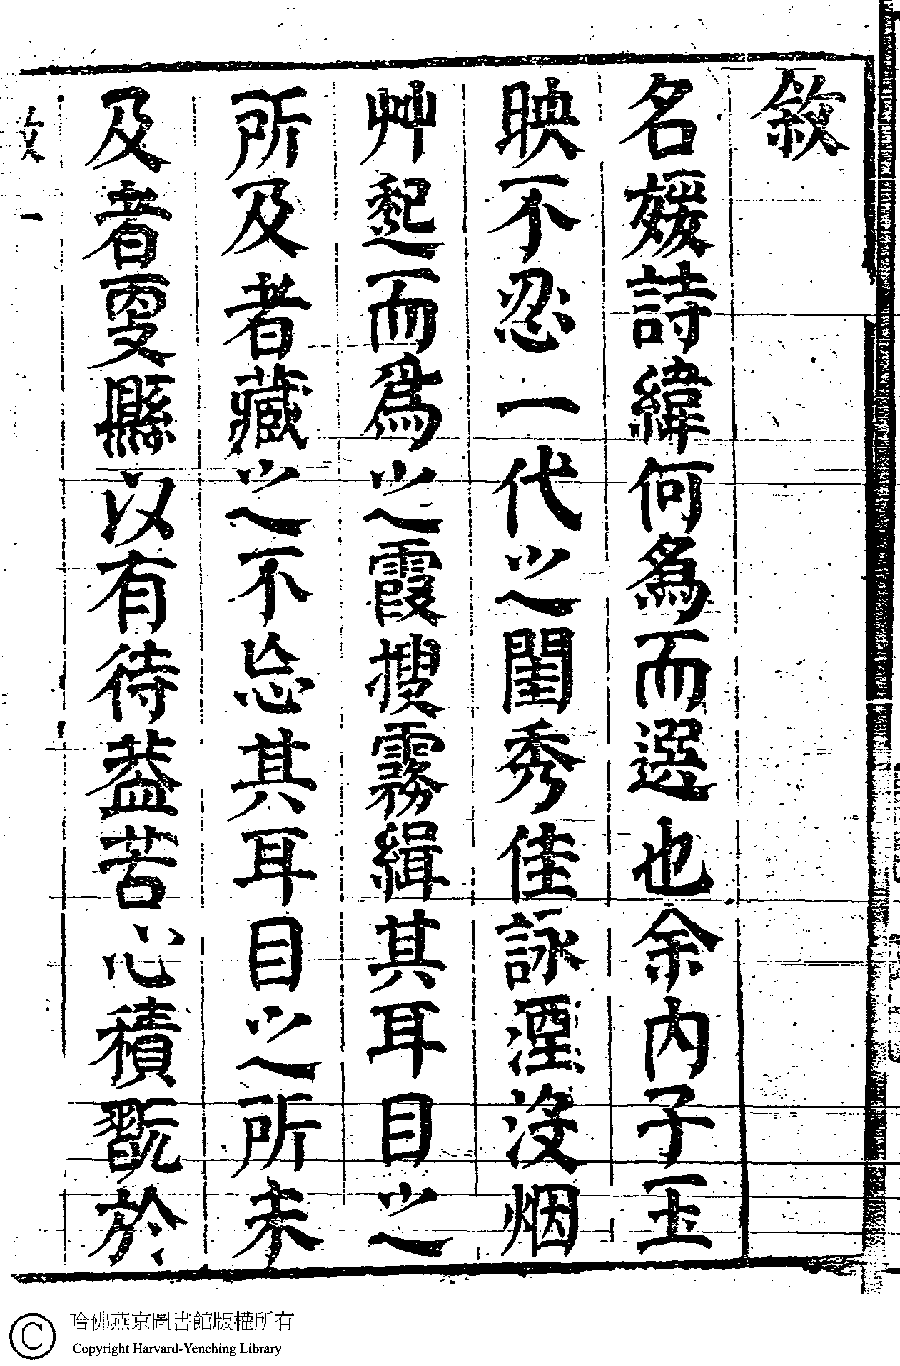 敘
名媛詩緯何為而選也余內子玉
映不忍一代之閨秀佳詠湮沒烟
艸起而為之霞搜霧緝其耳目之
所及者藏之不忘其耳目之所未
及者更懸以有待葢苦心積翫於
敘 一
哈佛燕京圖書館版權所有
Copyright Harvard-Yenching Library